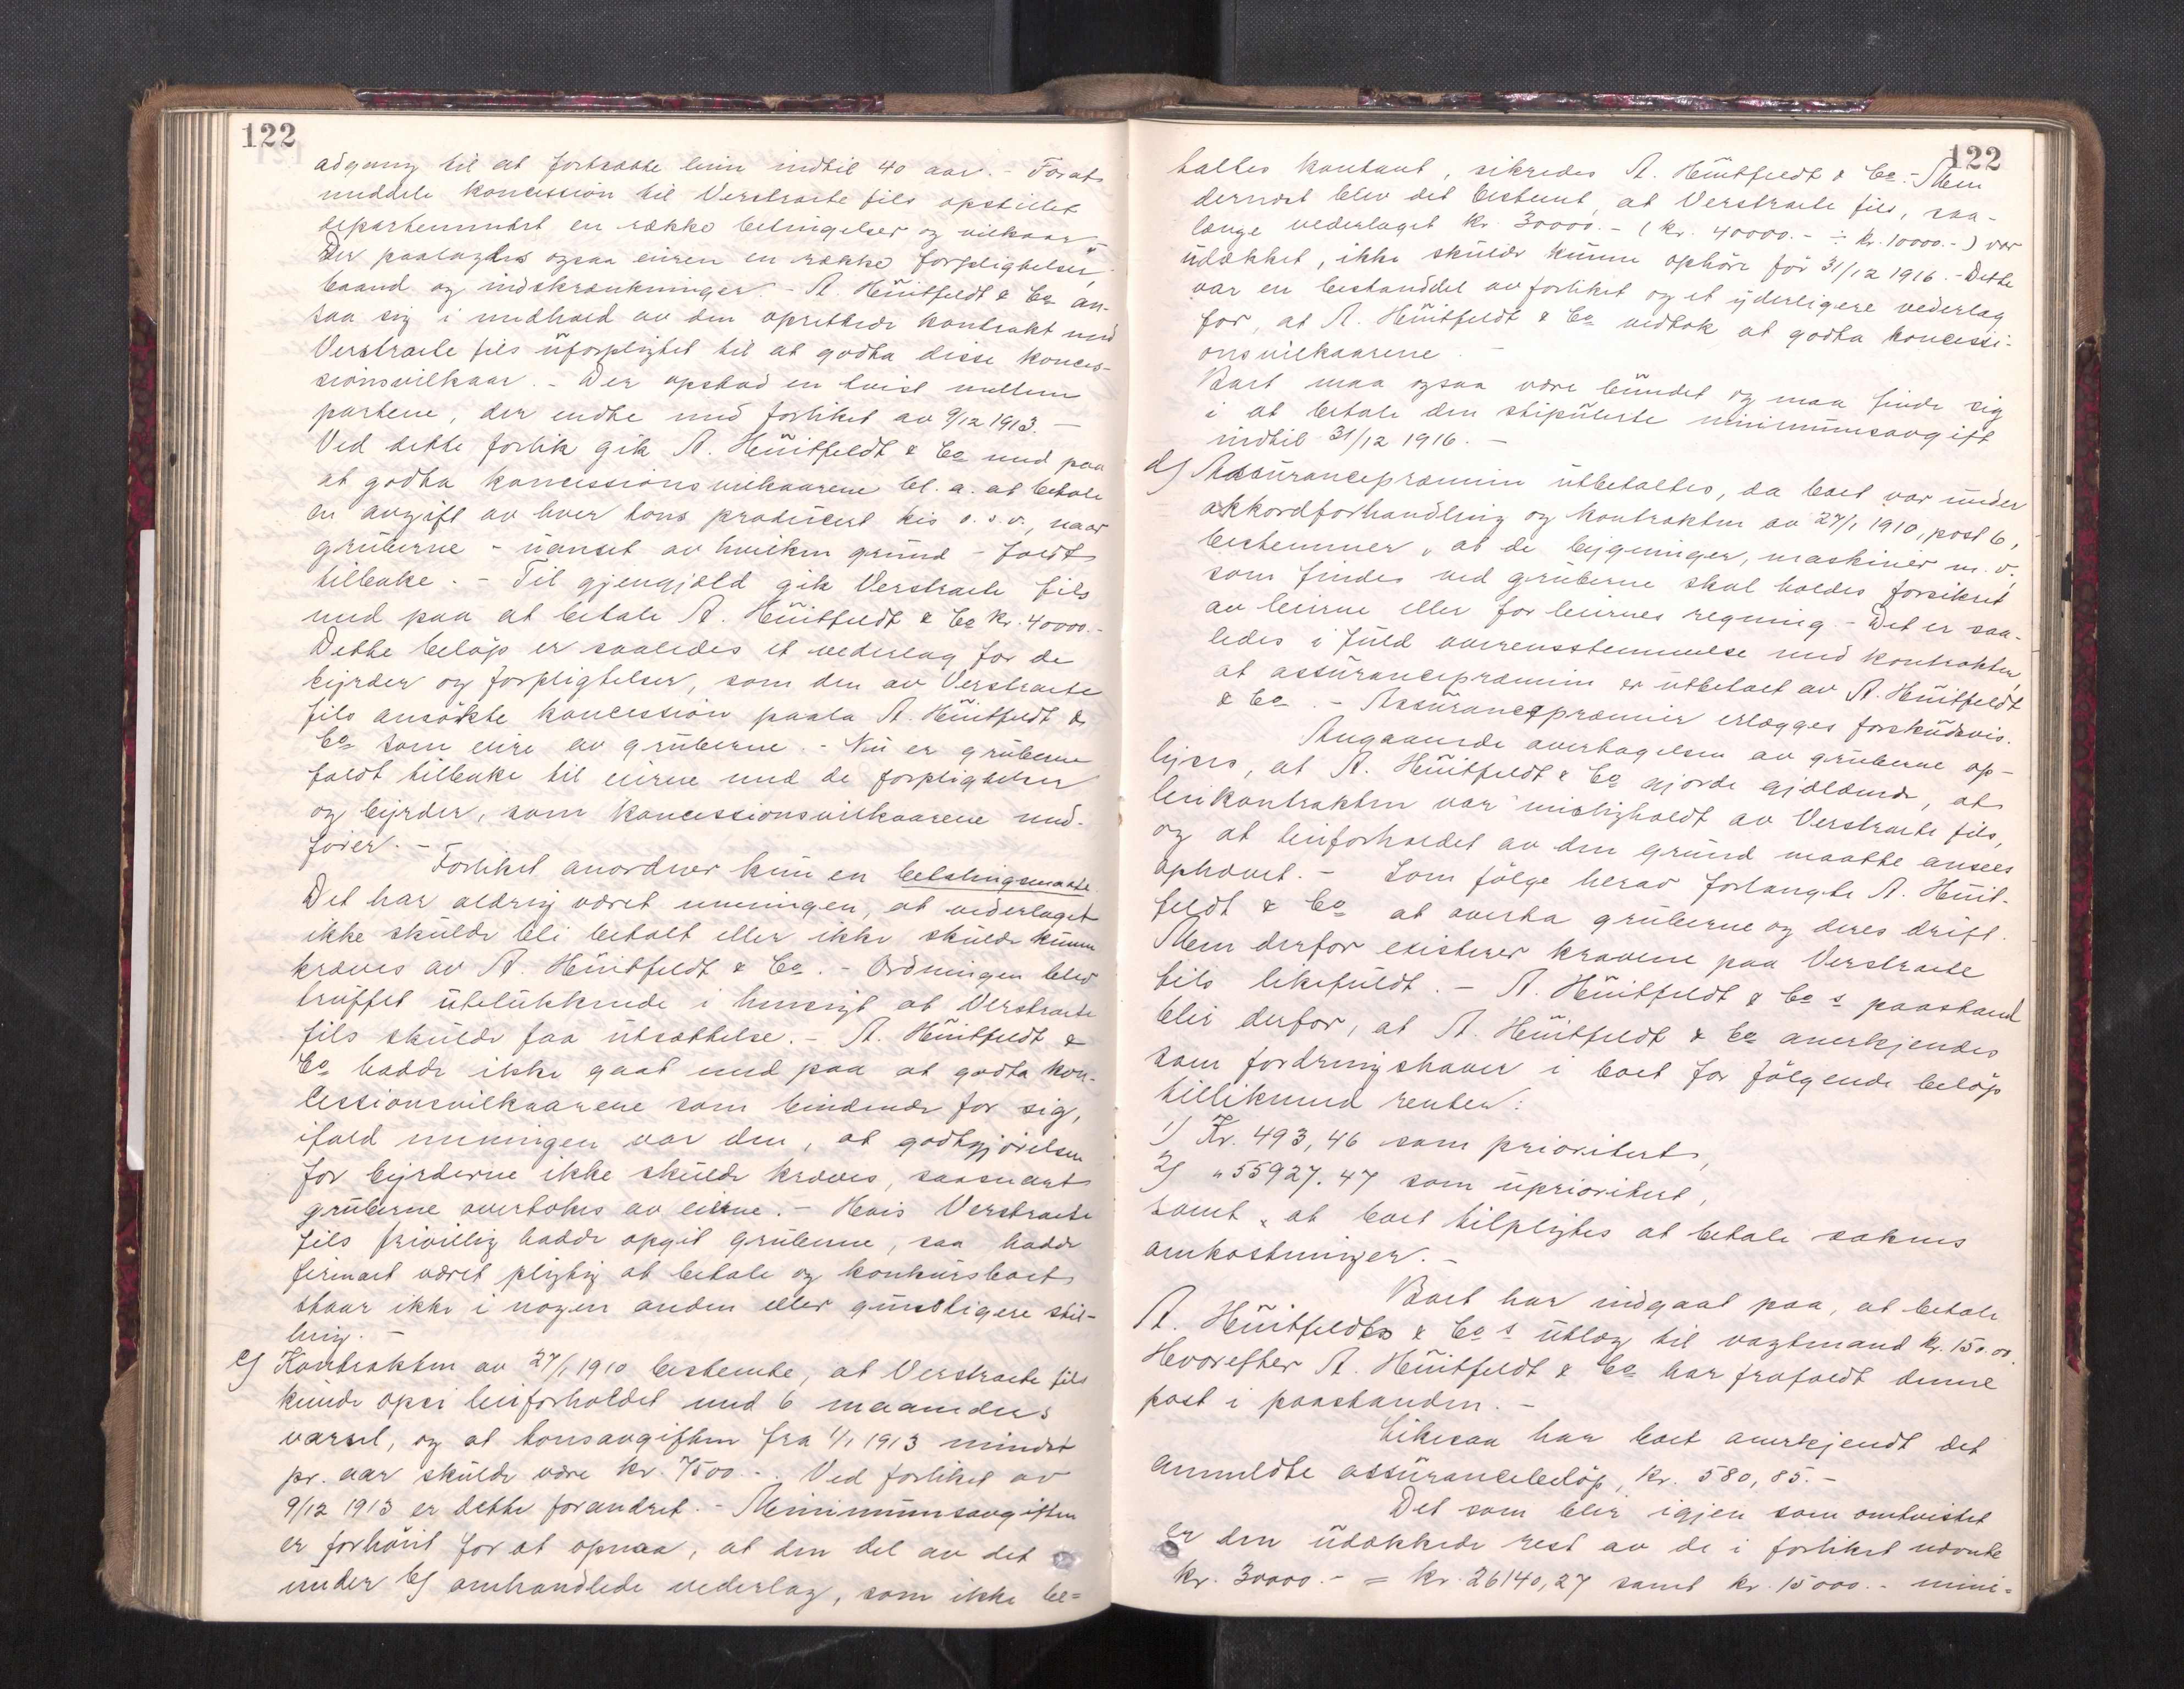 122
adgang til at fortsætte leien indtil 40 aar. - Forat
meddele koncession til Verstraete fils opstillet
departementet en række betingelser og vilkaar.
Der paalagdes ogsaa eieren en række forpligtelser,
baand og indskrænkninger. - A. Hüitfeldt & Co an-
saa sig i medhold av den oprettede kontrakt med
Verstraete fils uforpligtet til at godta disse konces-
sionsvilkaar. - Der opstod en tvist mellem
parterne, der endte med forliket av 9/12 1913. -
Ved dette forlik gik A. Hüitfeldt & Co med paa
at godta koncessionsvilkaarene bl. a. at betale
en avgift av hver tons producert kis o. s. v., naar
gruberne - uanset av hvilken grund - faldt
tilbake. - Til gjengjæld gik Verstraete fils
med paa at betale A. Hüitfeldt & Co kr. 40000.-
Dette beløp er saaledes et vederlag for de
byrder og forpligtelser, som den av Verstraete
fils ansøkte koncession paala A. Hüitfeldt &
Co som eiere av gruberne. - Nu er gruberne
faldt tilbake til eierne med de forpligtelser
og byrder, som koncessionsvilkaarene med-
fører. -
Forliket anordner kun en betalingsmaate.
Det har aldrig været meningen, at vederlaget
ikke skulde bli betalt eller ikke skulde kunne
kræves av A. Hüitfeldt & Co. - Ordningen blev
truffet utelukkende i hensigt at Verstraete
fils skulde faa utsættelse. - A. Hüitfeldt &
Co hadde ikke gaat med paa at godta kon-
cessionsvilkaarene som bindende for sig,
ifald meningen var den, at godtgjørelsen
for byrderne ikke skulde kræves, saasnart
gruberne overtokes av eierne. - Hvis Verstraete
fils frivillig hadde opgit gruberne, saa hadde
firmaet været pligtig at betale og konkursboet
staar ikke i nogen anden eller gunstigere stil-
ling. -
c) Kontrakten av 27/1 1910 bestemte, at Verstraete fils
kunde opsi leieforholdet med 6 maaneders
varsel, og at tonsavgiften fra 1/1 1913 mindst
pr. aar skulde være kr. 7500.-. Ved forliket av
9/12 1913 er dette forandret. - Minimumsavgiften
er forhøiet for at opnaa, at den del av det
under b) omhandlede vederlag, som ikke be=
122
taltes kontant, sikredes A. Hüitfeldt & Co. - Men
dernæst blev det bestemt, at Verstraete fils, saa-
længe vederlaget kr. 30000.- (kr. 40000.- ÷ kr. 10000.-) var
udækket, ikke skulde kunne ophøre før 31/12 1916. - Dette
var en bestanddel av forliket og et yderligere vederlag
for, at A. Hüitfeldt & Co vedtok at godta koncessi-
onsvilkaarene. -
Boet maa ogsaa være bundet og maa finde sig
i at betale den stipulerte minimumsavgift
indtil 31/12 1916. -
d) Assurancepræmien utbetaltes, da boet var under
akkordforhandling og kontrakten av 27/1 1910, post 6,
bestemmer, at de bygninger, maskiner m. v.,
som findes ved gruberne skal holdes forsikret
av leierne eller for leiernes regning. - Det er saa-
ledes i fuld overensstemmelse med kontrakten,
at assurancepræmien er utbetalt av A. Hüitfeldt
& Co. - Assurancepræmier erlægges forskudsvis.
Angaaende overtagelsen av gruberne op-
lyses, at A. Hüitfeldt & Co gjorde gjældende, at
leiekontrakten var misligholdt av Verstraete fils,
og at leieforholdet av den grund maatte ansees
ophævet. - Som følge herav forlangte A. Hüit-
feldt & Co at overta gruberne og deres drift.
Men derfor existerer kravene paa Verstraete
fils likefuldt. - A. Hüitfeldt & Co s paastand
blir derfor, at A. Hüitfeldt & Co anerkjendes
som fordringshaver i boet for følgende beløp
tillikemed renter:
1) Kr. 493,46 som prioritert,
2) " 55927.47 som uprioritert,
samt at boet tilpligtes at betale sakens
omkostninger. -
Boet har indgaat paa, at betale
A. Hüitfeldts & Co s utlæg til vagtmand kr. 150.00.
Hvorefter A. Hüitfeldt & Co har frafaldt denne
post i paastanden. -
Likesaa har boet anerkjendt det
anmeldte assurancebeløp, kr. 580,85.-
Det som blir igjen som omtvistet
er den udækkede rest av de i forliket nævnte
kr. 30000.- = kr. 26140,27 samt kr. 15000.- mini=